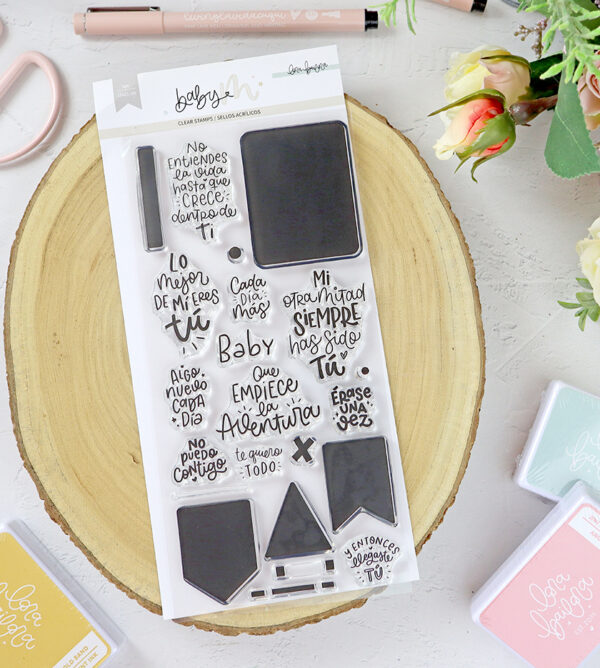 baby
lora bailora
CLEAR STAMPS | SELLOS ACRÍLICOS
NO
ENTIENDES
la vida
hasta que
CRECE
dentro de
Ti
LO
MEJOR
DE MÍ ERES
tú
Cada
DÍA
MÁS
Mi
OTRA MITAD
SIEMPRE
has sido
TÚ
Baby
Algo
NUEVO
CADA
DÍA
Que
EMPIECE
la
Aventura
ÉRASE
UNA
vez
NO
PUEDO
CONTIGO
te quiero
TODO
Y ENTONCES
llegaste
TÚ
lora
bailora
lora
bailora